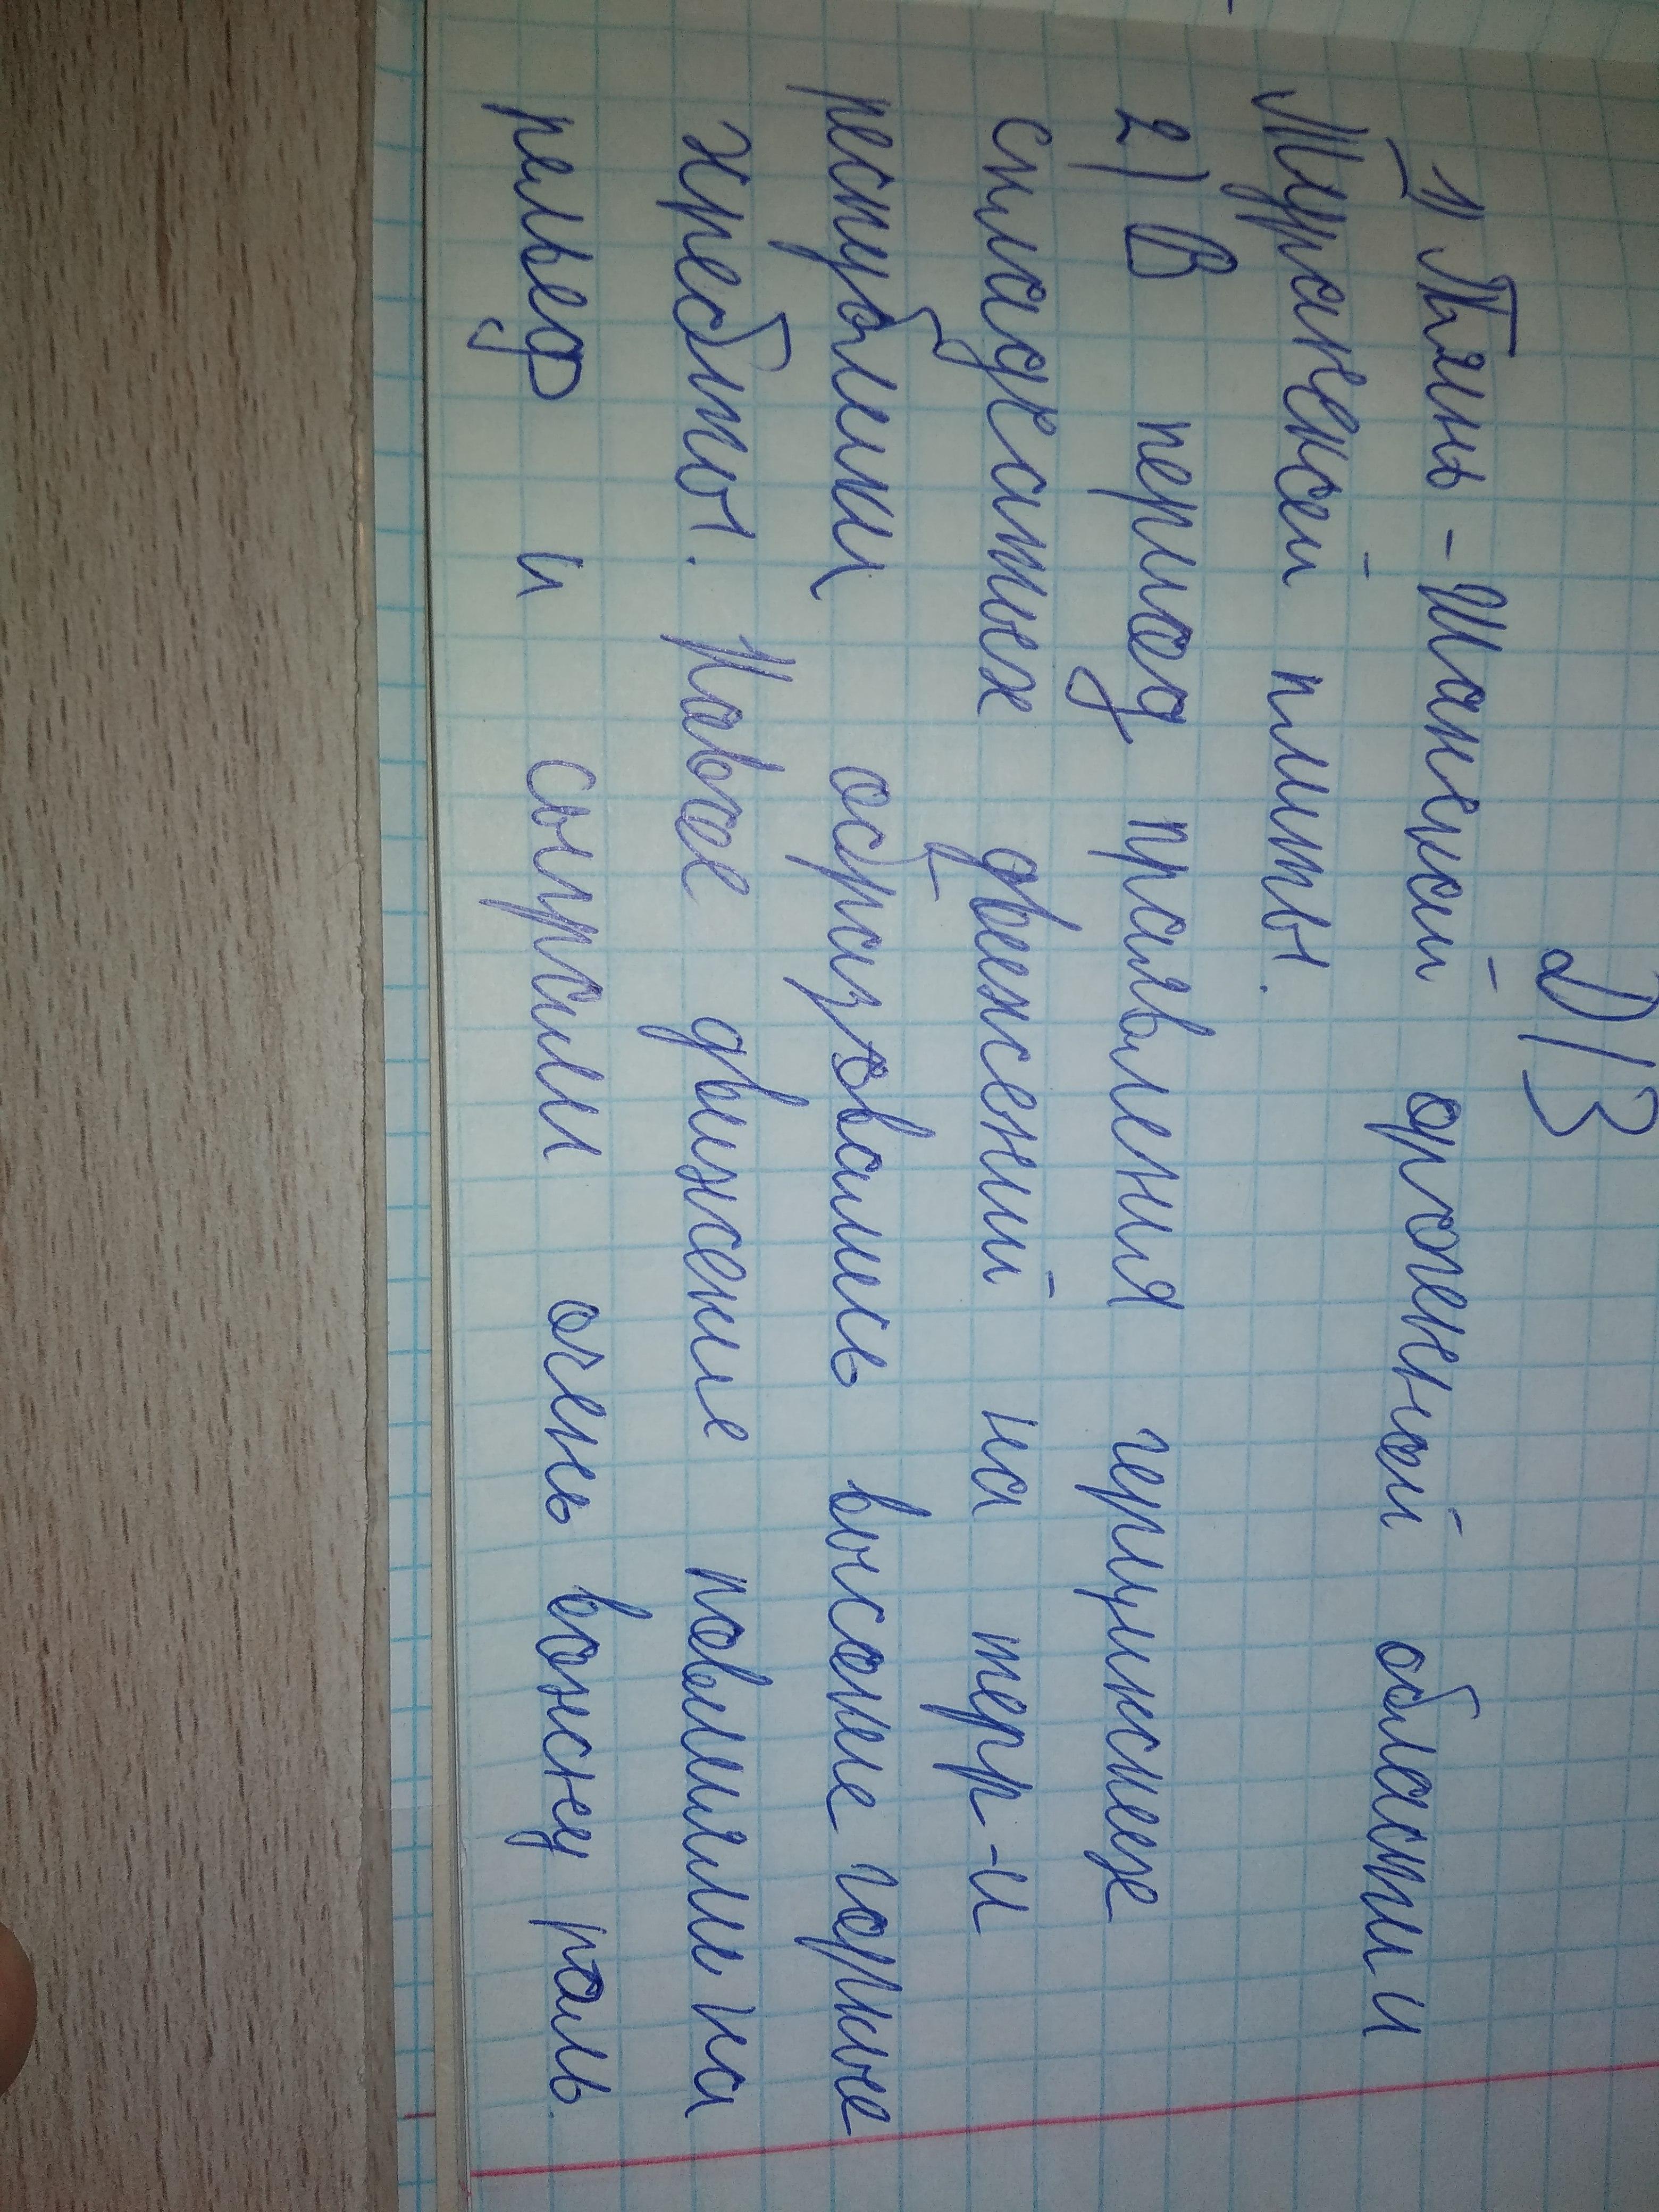 Д/З
1) Тянь-Шанской орогенной области и
Туранской плиты.
2) В период праявления герцинских
складчатых движений на терр-и
республики образовались высокие горные
хребты. Новое движение повлияли на
рельеф и сыграли очень важну роль.